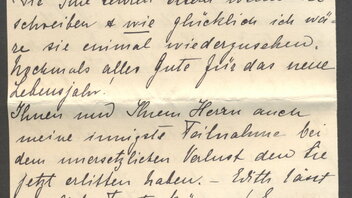 schreiben & wie glücklich ich wä-
re sie einmal wiederzusehen.
Nochmals alles Gute für das neue
Lebensjahr!
Ihnen und Ihrem Herrn auch
meine innigste Teilnahme bei
dem unersetzlichen Verlust den Sie
jetzt erlitten haben. – Edith lässt